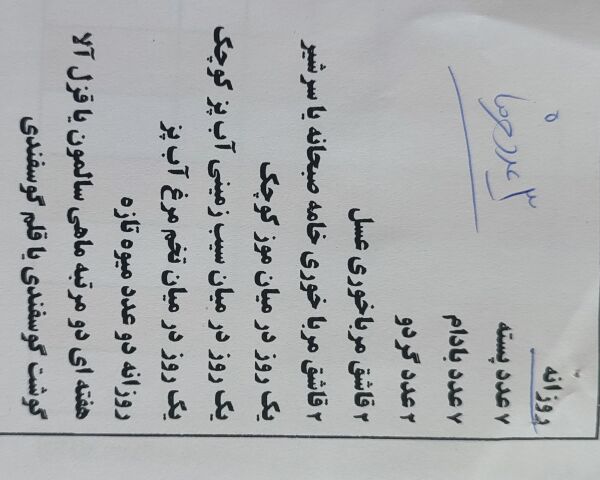 روزانه
۷ عدد پسته
۷ عدد بادام
۲ عدد گردو
۲ قاشق مرباخوری عسل
۲ قاشق مربا خوری خامه صبحانه یا سرشیر
یک روز در میان موز کوچک
یک روز در میان سیب زمینی آب پز کوچک
یک روز در میان تخم مرغ آب پز
روزانه دو عدد میوه تازه
هفته ای دو مرتبه ماهی سالمون یا قزل آلا
گوشت گوسفندی یا قلم گوسفندی
۳ عدد خرما